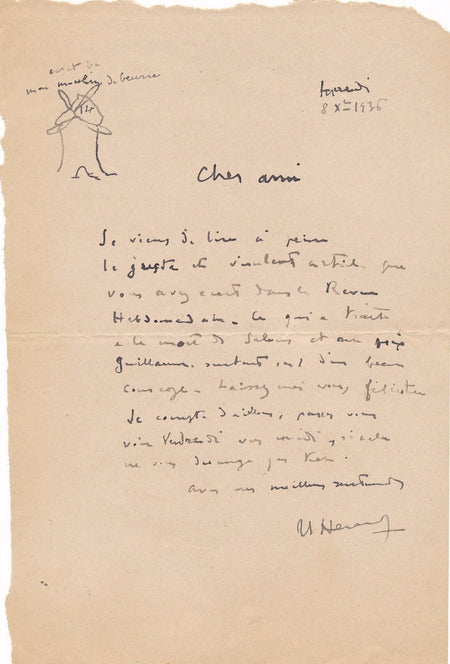 mon moulin de beurre
mardi
8 Xbre 1936
Cher ami
Je viens de lire à peine
le juste et virulent article que
vous avez écrit dans la Revue
Hebdomadaire. Ce qui a trait
à la mort de Salengro et au prix
Guillaume surtout est d'un beau
courage. Laissez moi vous féliciter
Je compte d'ailleurs, passer vous
voir Vendredi vers midi, si cela
ne vous dérange pas
avec mes meilleurs sentiments